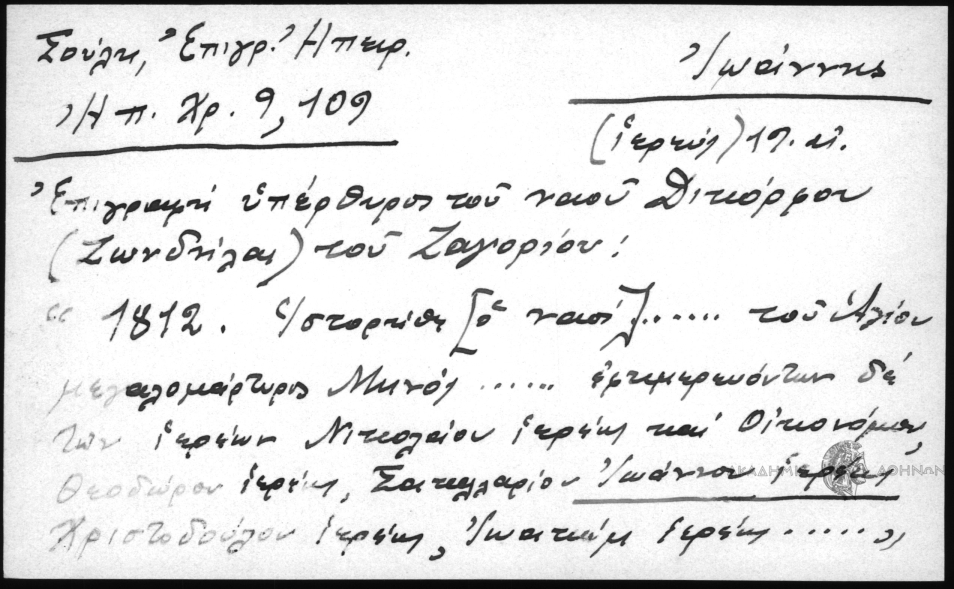 Σούλη, Ἐπιγρ. Ἠπειρ.
Ἰωάννης
Ἠπ. Χρ. 9, 109
(ἱερεύς) 19. αἰ.
Ἐπιγραφή ὑπέρθυρος τοῦ ναοῦ Δικόρφου
(Ζωνδήλας) τοῦ Ζαγορίου:
“ 1812. Ἱστορήθη [ὁ ναός]...... τοῦ Ἁγίου
μεγαλομάρτυρος Μηνᾶ ...... ἐφημερευόντων δέ
τῶν ἱερέων Νικολάου ἱερέως καί Οἰκονόμου,
Θεοδώρου ἱερέως, Σακελλαρίου Ἰωάννου ἱερέως
Χριστοδούλου ἱερέως, Ἰωακείμ ἱερέως ..... „
ΑΚΑΔΗΜΙΑ ΑΘΗΝΩΝ